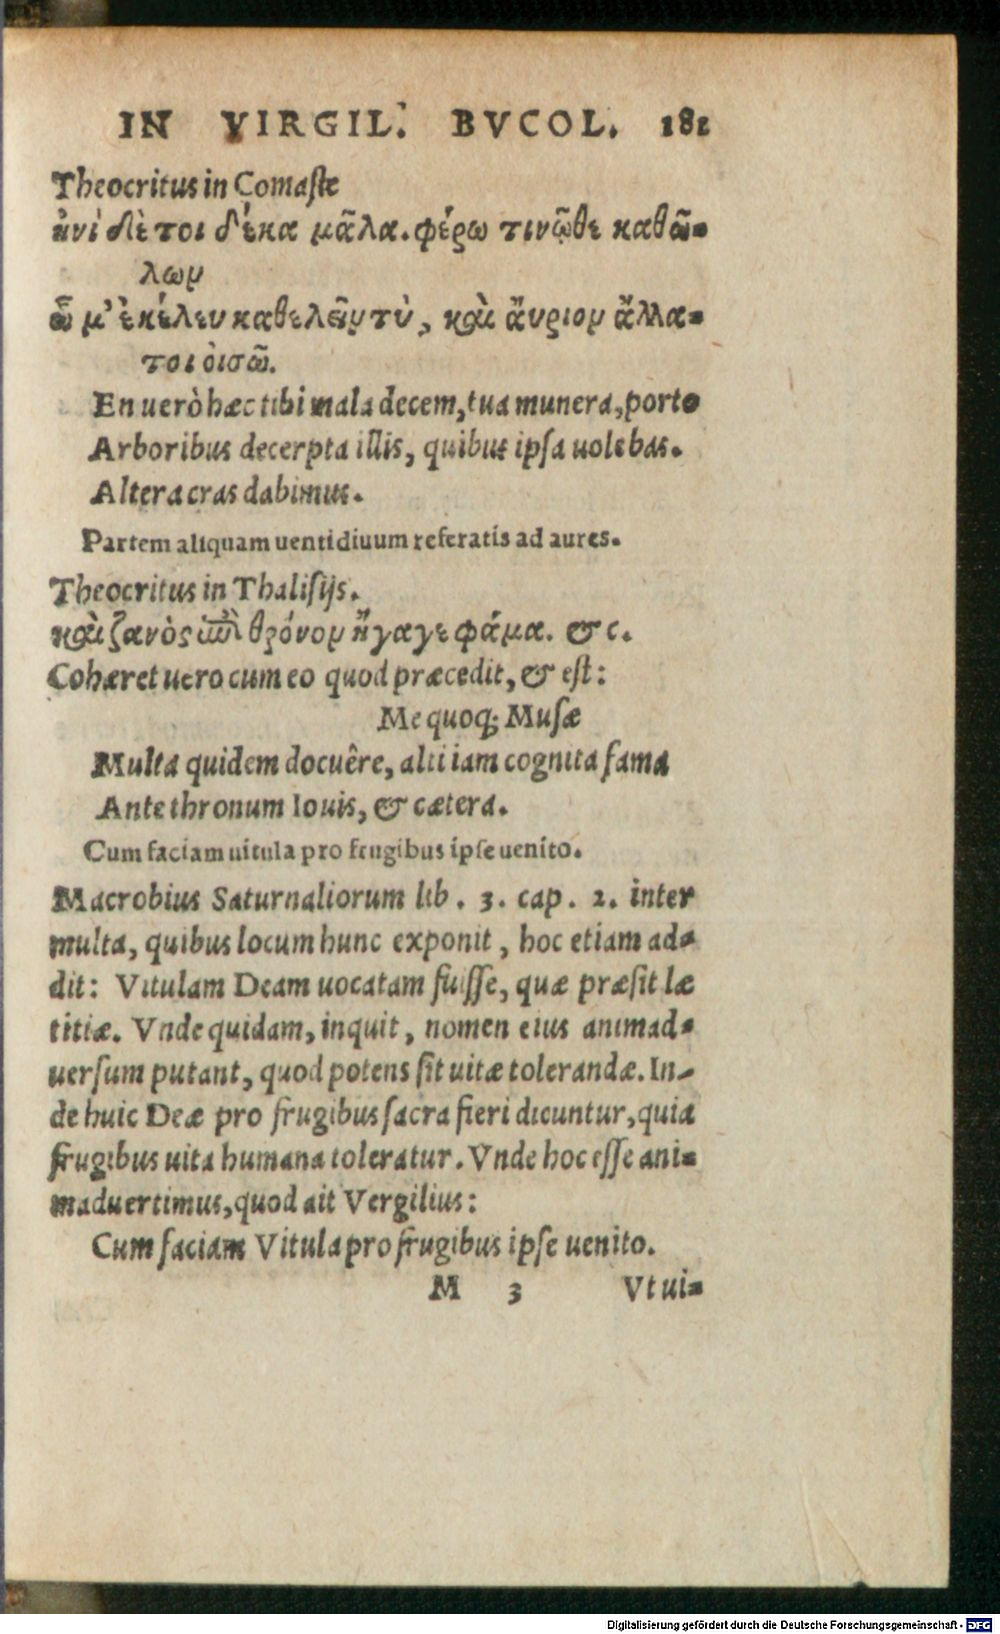 IN VIRGIL. BVCOL. 181
Theocritus in Comaste
ἠνὶ δὲ τοι δέκα μᾶλα. φέρω τινῶθε καθῶ-
λων
ὧ μ' ἐκέλευ καθελεῖν τὺ, καὶ ἄυριον ἄλλα-
τοι ὀισῶ.
En uerò hæc tibi mala decem, tua munera, porto
Arboribus decerpta illis, quibus ipsa uolebas.
Altera cras dabimus.
Partem aliquam uenti diuum referatis ad aures.
Theocritus in Thalisijs.
καὶ ζανὸς ἐπὶ θρόνον ἤγαγε φάμα. & c.
Cohæret uero cum eo quod præcedit, & est:
Me quoq; Musæ
Multa quidem docuêre, alti iam cognita fama
Ante thronum Iouis, & cætera.
Cum faciam uitula pro frugibus ipse uenito.
Macrobius Saturnaliorum lib. 3. cap. 2. inter
multa, quibus locum hunc exponit, hoc etiam ad-
dit: Vitulam Deam uocatam fuisse, quæ præsit læ
titiæ. Vnde quidam, inquit, nomen eius animad-
uersum putant, quod potens sit uitæ tolerandæ. In-
de huic Deæ pro frugibus sacra fieri dicuntur, quia
frugibus uita humana toleratur. Vnde hoc esse ani-
maduertimus, quod ait Vergilius:
Cum faciam Vitula pro frugibus ipse uenito.
M 3 Vt ui-
Digitalisierung gefördert durch die Deutsche Forschungsgemeinschaft - DFG